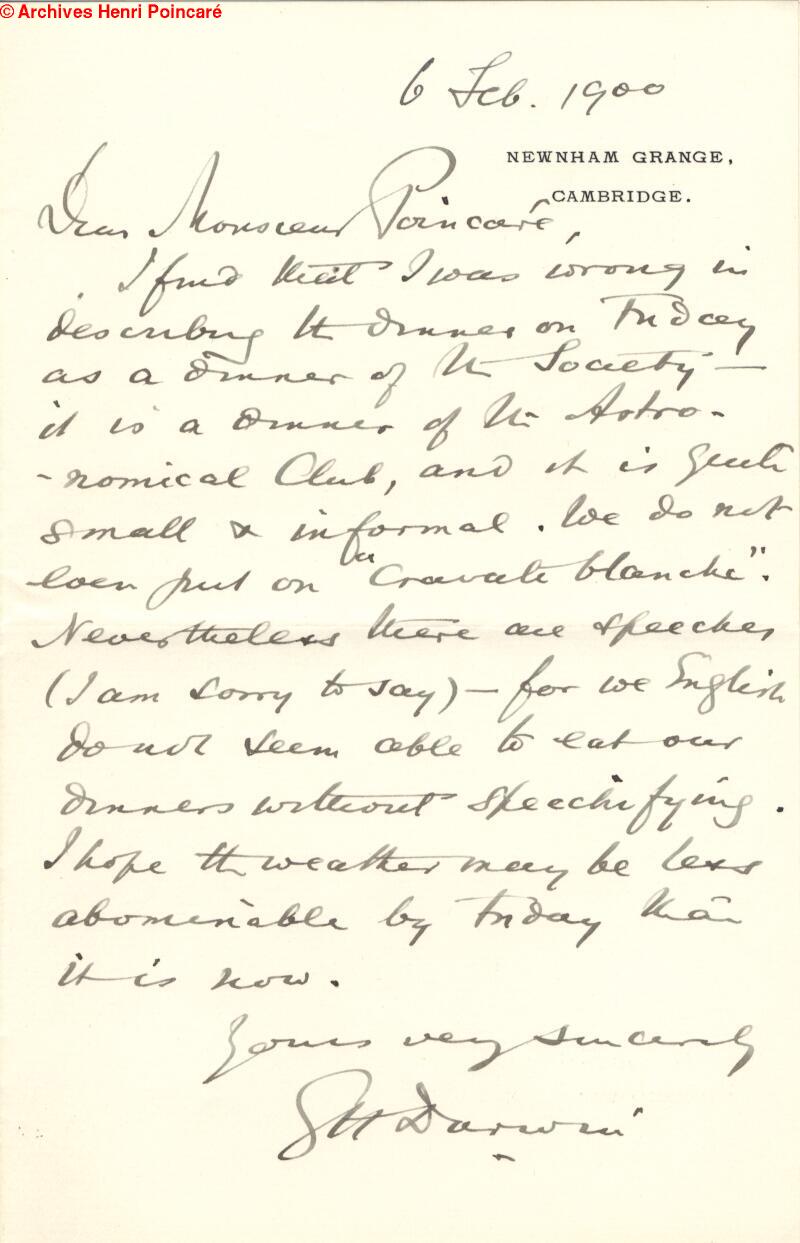 © Archives Henri Poincaré
6 Feb. 1900
NEWNHAM GRANGE,
CAMBRIDGE.
Dear Monsieur Poincaré,
I find that I was wrong in
describing the dinner on Friday
as a dinner of the Society —
it is a dinner of the Astro-
-nomical Club, and it is quite
small & informal. We do not
even put on "cravate blanche".
Nevertheless there are speeches
(I am sorry to say) — for we English
do not seem able to eat our
dinners without speechifying.
I hope the weather may be less
abominable by Friday than
it is now.
Yours very sincerely
G H Darwin